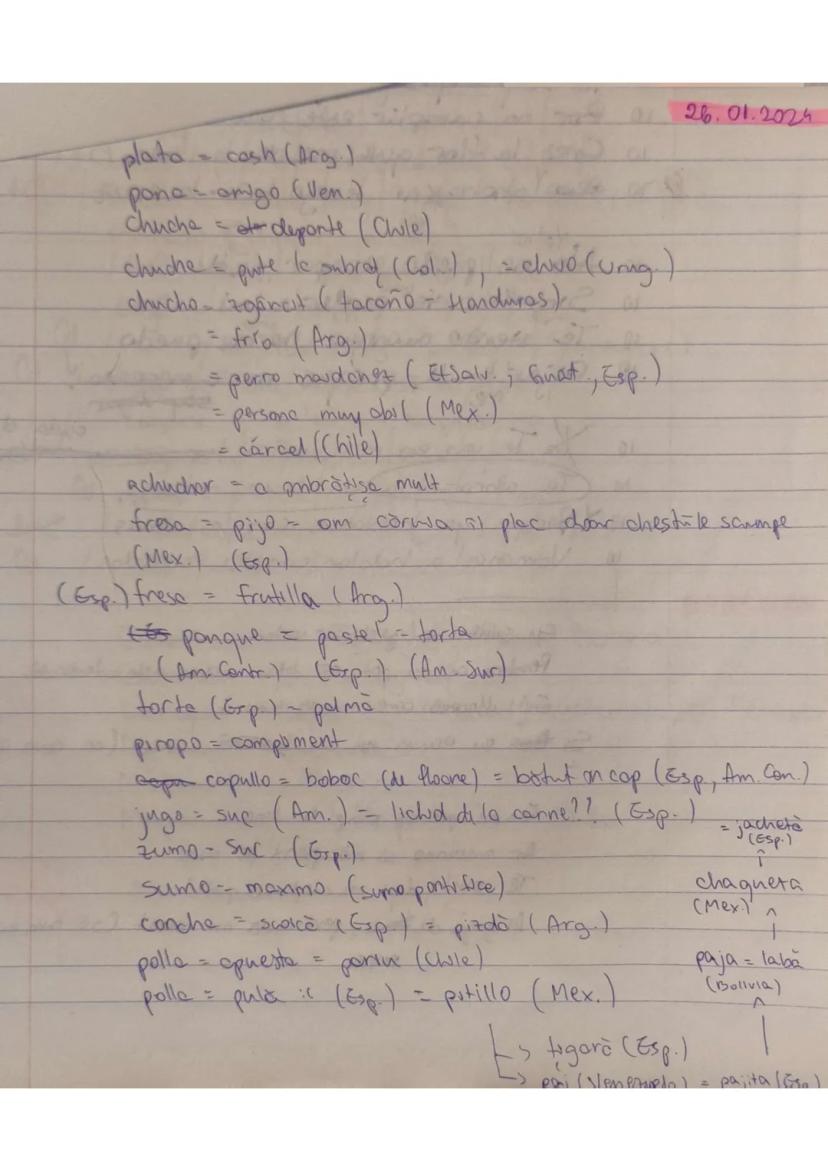 26.01.2024
plata = cash (Arg.)
pana = amigo (Ven.)
chucha = deporte (Chile)
chucha = pute la subraț (Col.), = chivo (Urug.)
chucho = zgârcit (tacaño - Honduras)
= frío (Arg.)
= perro maidanez (El Salv.; Guat., Esp.)
= persona muy abil (Mex.)
= cárcel (Chile)
achuchar = a îmbrățișa mult
fresa = pijo = om căruia îi plac doar chestiile scumpe
(Mex.) (Esp.)
(Esp.) fresa = frutilla (Arg.)
ponque = pastel = torta
(Am. Centr.) (Esp.) (Am. Sur)
torta (Esp.) = palmă
piropo = compliment
capullo = boboc (de floare) = botut în cap (Esp, Am. Cen.)
jugo = suc (Am.) = lichid de la carne?? (Esp.)
= jachetă
(Esp.)
zumo = suc (Esp.)
sumo = maximo (sumo pontifice)
chaqueta
(Mex.)
concha = scoică (Esp.) = pizdă (Arg.)
polla = apuesta = pariu (Chile)
paja = labă
(Bolivia)
polla = pulă (Esp.) = pitillo (Mex.)
țigară (Esp.)
(Venezuela) = pajita (Esp.)